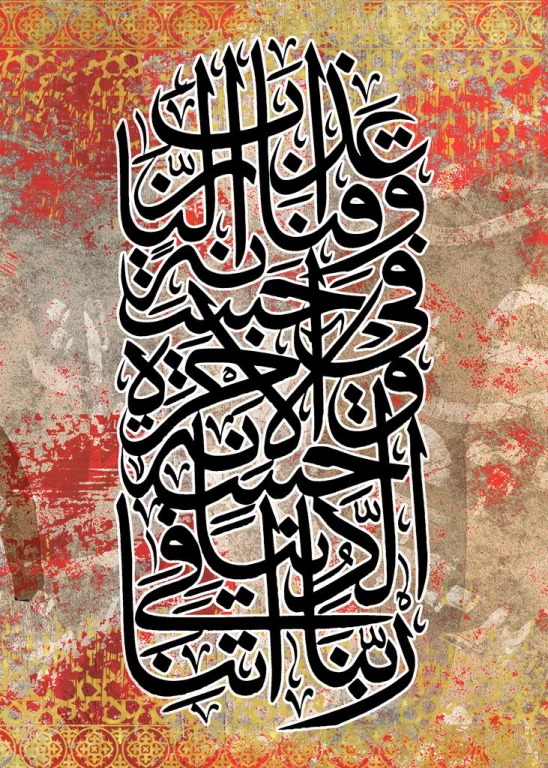 ربنا اتنا في
الدنيا حسنة
و في الاخرة
حسنة
وقنا عذاب النار